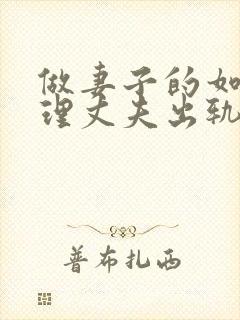 做妻子的如
理丈夫出轨
普布扎西